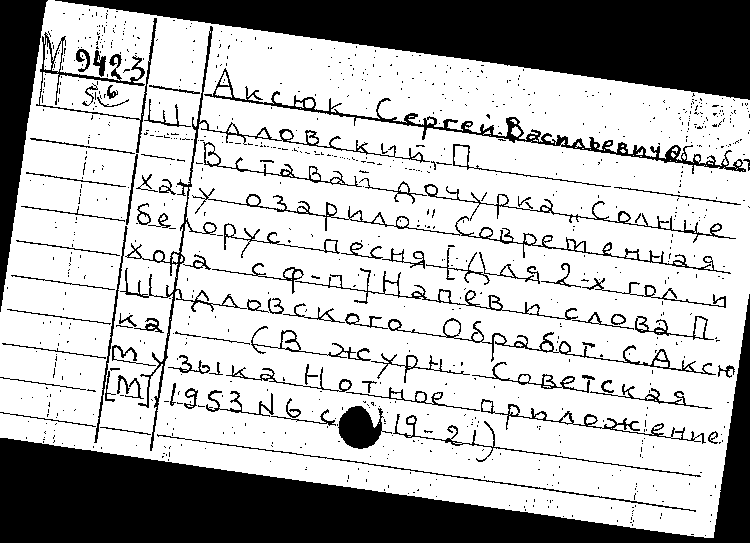 М 942-3
56
Аксюк, Сергей Васильевич обработ
Шидловский, П.
Вставай дочурка „Солнце
хату озарило." Современная
белорус. песня [Для 2-х гол. и
хора с ф-п.] Напев и слова П.
Шидловского. Обработ. С. Аксю
ка (В журн.: Советская
музыка. Нотное приложение
[М], 1953 N6 с 19-21)